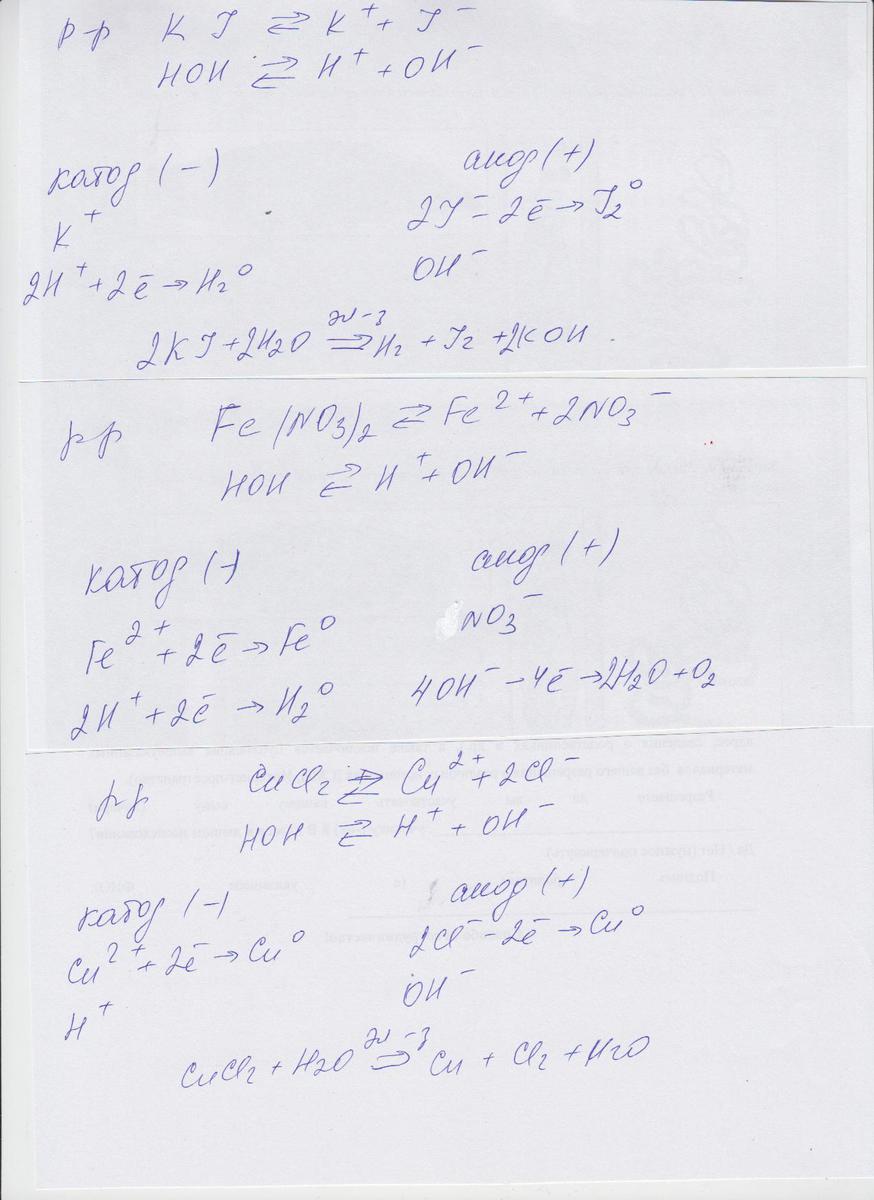 р-р K J ⇄ K⁺ + J⁻
HOH ⇄ H⁺ + OH⁻
катод (-) анод (+)
K⁺ 2J⁻ - 2ē → J₂⁰
2H⁺ + 2ē → H₂⁰ OH⁻
2KJ + 2H2O эл-з ⇒ H₂ + J₂ + 2KOH
р-р Fe(NO₃)₂ ⇄ Fe²⁺ + 2NO₃⁻
HOH ⇄ H⁺ + OH⁻
катод (-) анод (+)
Fe²⁺ + 2ē → Fe⁰ NO₃⁻
2H⁺ + 2ē → H₂⁰ 4OH⁻ - 4ē → 2H₂O + O₂
р-р CuCl₂ ⇄ Cu²⁺ + 2Cl⁻
HOH ⇄ H⁺ + OH⁻
катод (-) анод (+)
Cu²⁺ + 2ē → Cu⁰ 2Cl⁻ - 2ē → Cu⁰
H⁺ OH⁻
CuCl₂ + H2O эл-з ⇒ Cu + Cl₂ + H2O